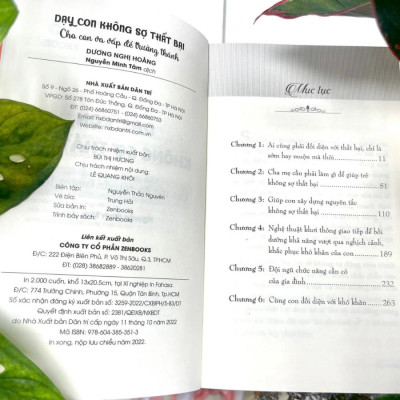 DẠY CON KHÔNG SỢ THẤT BẠI
Cho con va vấp để trưởng thành
DƯƠNG NGHỊ HOÀNG
Nguyễn Minh Tâm dịch
NHÀ XUẤT BẢN DÂN TRÍ
Số 9 - Ngõ 26 - Phố Hoàng Cầu - Q. Đống Đa - TP Hà Nội
VPGD: Số 278 Tôn Đức Thắng, Q. Đống Đa - TP Hà Nội
ĐT: (024) 66860751 - (024) 66860752
Email: nxbdantri@gmail.com
Website: nxbdantri.com.vn
Chịu trách nhiệm xuất bản:
BÙI THỊ HƯƠNG
Chịu trách nhiệm nội dung:
LÊ QUANG KHÔI
Biên tập: Nguyễn Thảo Nguyên
Vẽ bìa: Trung Hải
Sửa bản in: Zenbooks
Trình bày sách: Zenbooks
Liên kết xuất bản
CÔNG TY CỔ PHẦN ZENBOOKS
Đ/C: 222 Điện Biên Phủ, P. Võ Thị Sáu, Q.3, TP.HCM
ĐT: (028) 38682889 - 38620281
In 2.000 cuốn, khổ 13x20,5cm, tại Xí nghiệp in Fahasa.
Đ/C: 774 Trường Chinh, Phường 15, Quận Tân Bình, Tp.HCM
Số xác nhận đăng ký xuất bản số: 3259-2022/CXBIPH/3-83/DT
Quyết định xuất bản số: 2381/QĐXB/NXBDT
do Nhà Xuất bản Dân trí cấp ngày 11 tháng 10 năm 2022
Mã ISBN: 978-604-385-351-3
In xong, nộp lưu chiểu năm 2022.
Mục lục
Chương 1: Ai cũng phải đối diện với thất bại, chỉ là
sớm hay muộn mà thôi 11
Chương 2: Cha mẹ cần phải làm gì để giúp trẻ
không sợ thất bại 51
Chương 3: Giúp con xây dựng nguyên tắc
không sợ thất bại 110
Chương 4: Nghệ thuật khơi thông giao tiếp để bồi
dưỡng khả năng vượt qua nghịch cảnh,
khắc phục khó khăn của con 189
Chương 5: Đội ngũ chức năng cần có
của gia đình 232
Chương 6: Cùng con đối diện với khó khăn 263